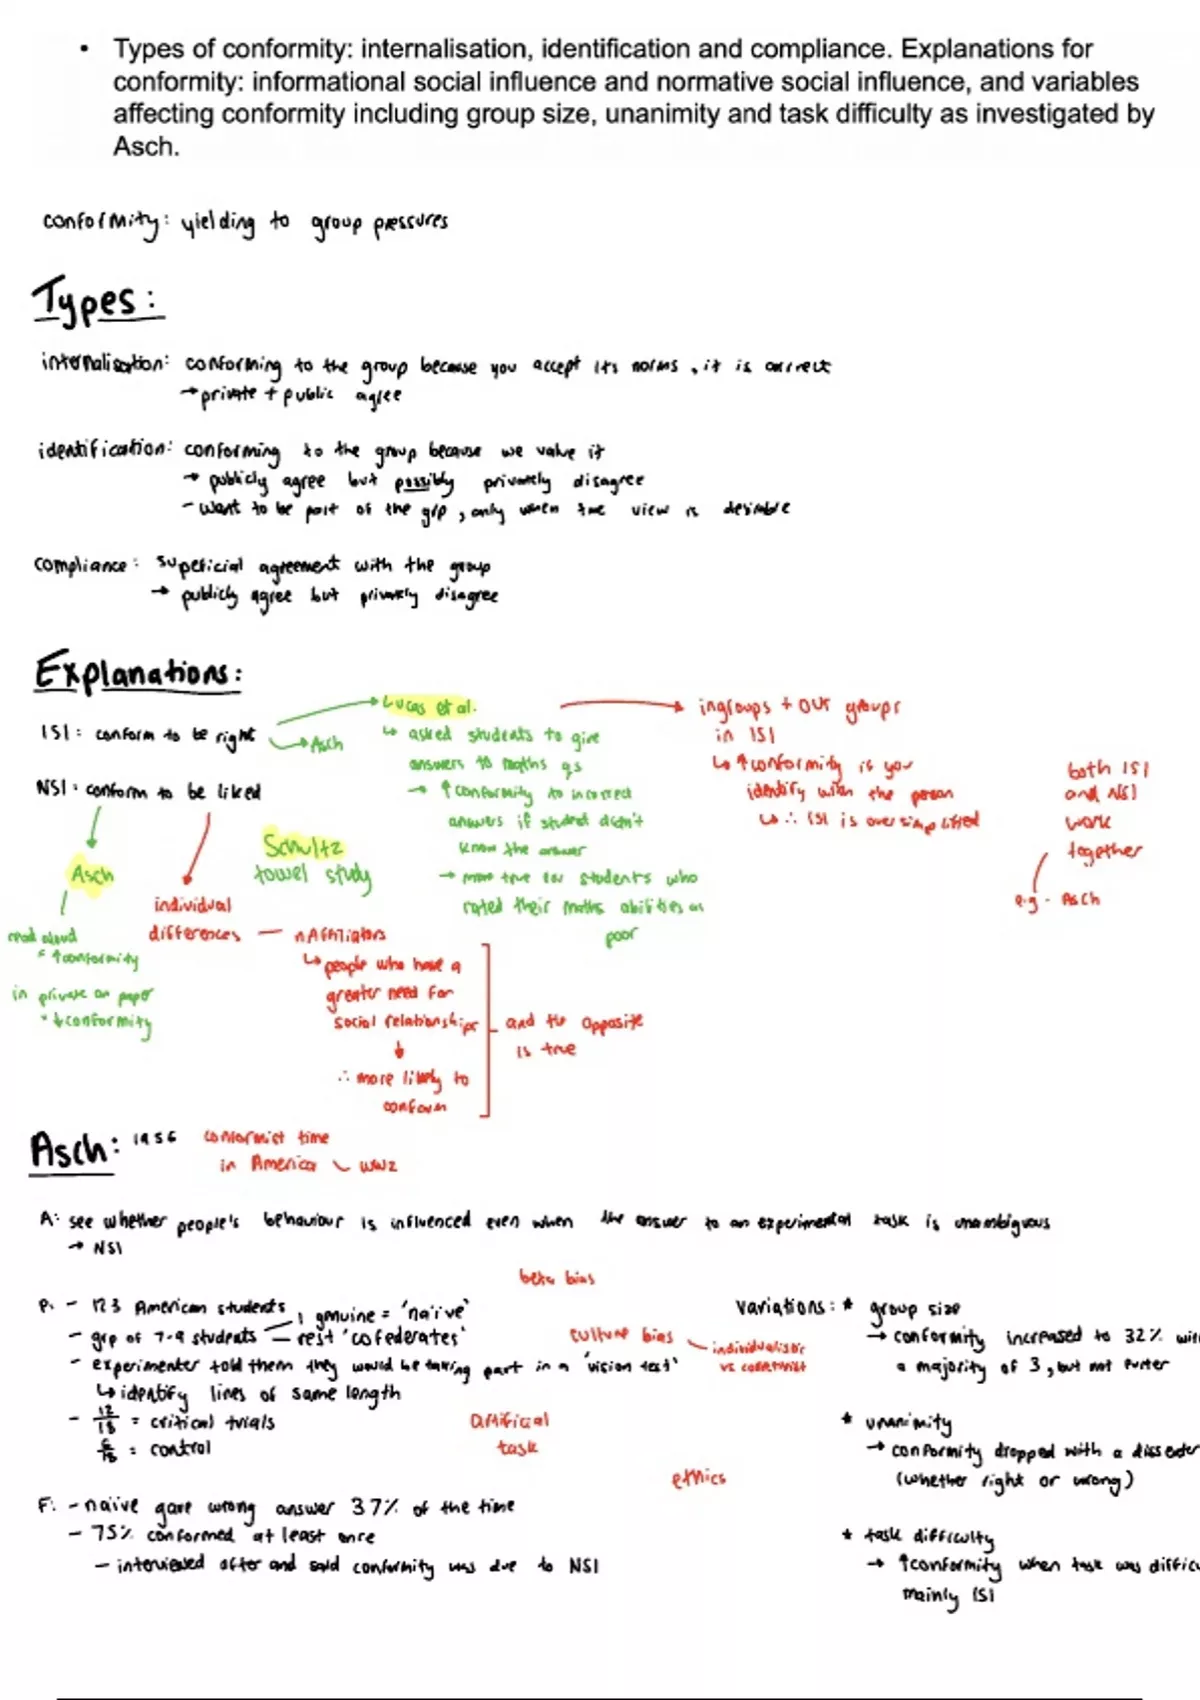 • Types of conformity: internalisation, identification and compliance. Explanations for
conformity: informational social influence and normative social influence, and variables
affecting conformity including group size, unanimity and task difficulty as investigated by
Asch.
conformity: yielding to group pressures
Types:
internalisation: conforming to the group because you accept its norms, it is correct
→ private + public agree
identification: conforming to the group because we value it
→ publicly agree but possibly privately disagree
- want to be part of the grp, only when the view is desirable
compliance: superficial agreement with the group
→ publicly agree but privately disagree
Explanations:
ISI: conform to be right
→ Asch
NSI: conform to be liked
Asch
read aloud
= ↑conformity
in private on paper
= ↓conformity
individual
differences
Schultz
towel study
Lucas et al.
↳ asked students to give
answers to maths qs
→ ↑ conformity to incorrect
answers if student didn't
know the answer
→ more true for students who
rated their maths abilities as
poor
ingroups + out groups
in ISI
↳ ↑conformity if you
identify with the person
↳ ∴ ISI is oversimplified
both ISI
and NSI
work
together
e.g - Asch
nAffiliators
↳ people who have a
greater need for
social relationships
↓
∴ more likely to
conform
and the opposite
is true
Asch: 1956
conformist time
in America WW2
A: see whether people's behaviour is influenced even when the answer to an experimental task is unambiguous
→ NSI
beta bias
P: - 123 American students
- grp of 7-9 students
1 genuine = 'naive'
rest 'cofederates'
- experimenter told them they would be taking part in a 'vision test'
↳ identify lines of same length
- 12/18 = critical trials
6/18 = control
culture bias
individualistic
vs collectivist
artificial
task
ethics
F: - naive gave wrong answer 37% of the time
- 75% conformed at least once
- interviewed after and said conformity was due to NSI
Variations: * group size
→ conformity increased to 32% wit
a majority of 3, but not further
* unanimity
→ conformity dropped with a dissenter
(whether right or wrong)
* task difficulty
→ ↑conformity when task was difficu
mainly ISI